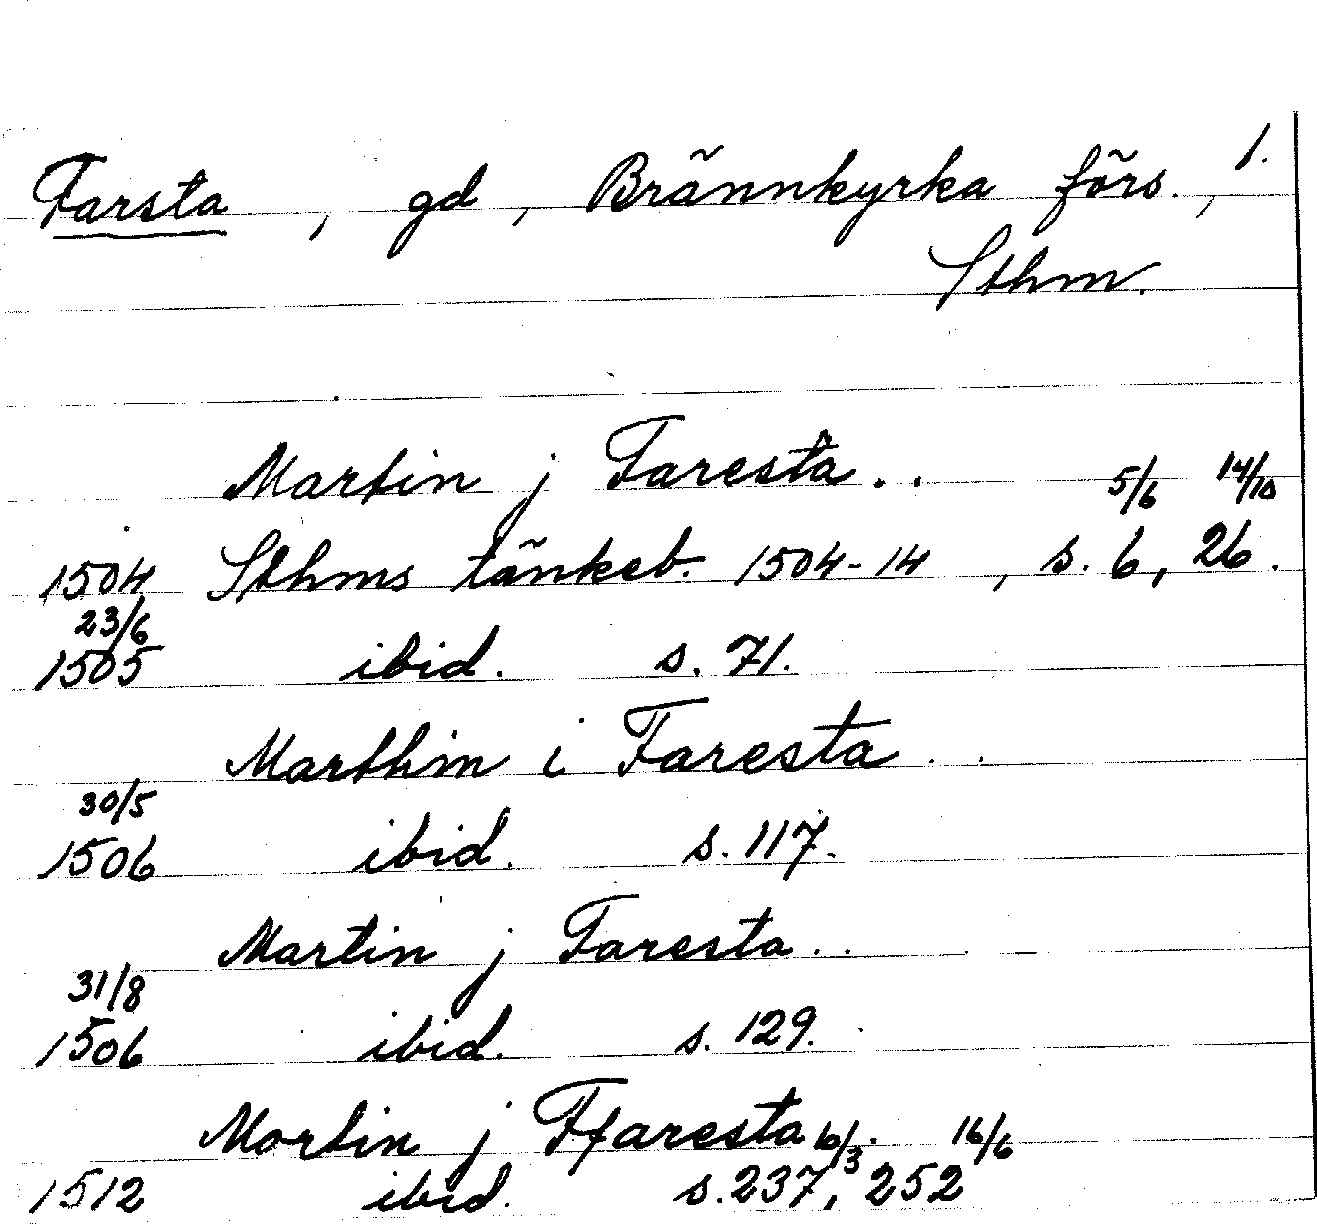 Farsta, gd, Brännkyrka förs., 1.
Sthm.
Martin j Faresta..
5/6 14/10
1504 Sthms tänkeb. 1504-14, s. 6, 26.
23/6
1505 ibid. s. 71.
Marthin i Faresta..
30/5
1506 ibid. s. 117.
Martin j Faresta..
31/8
1506 ibid. s. 129.
Mortin j Ffaresta.
16/6
1512 ibid. s. 237, 252